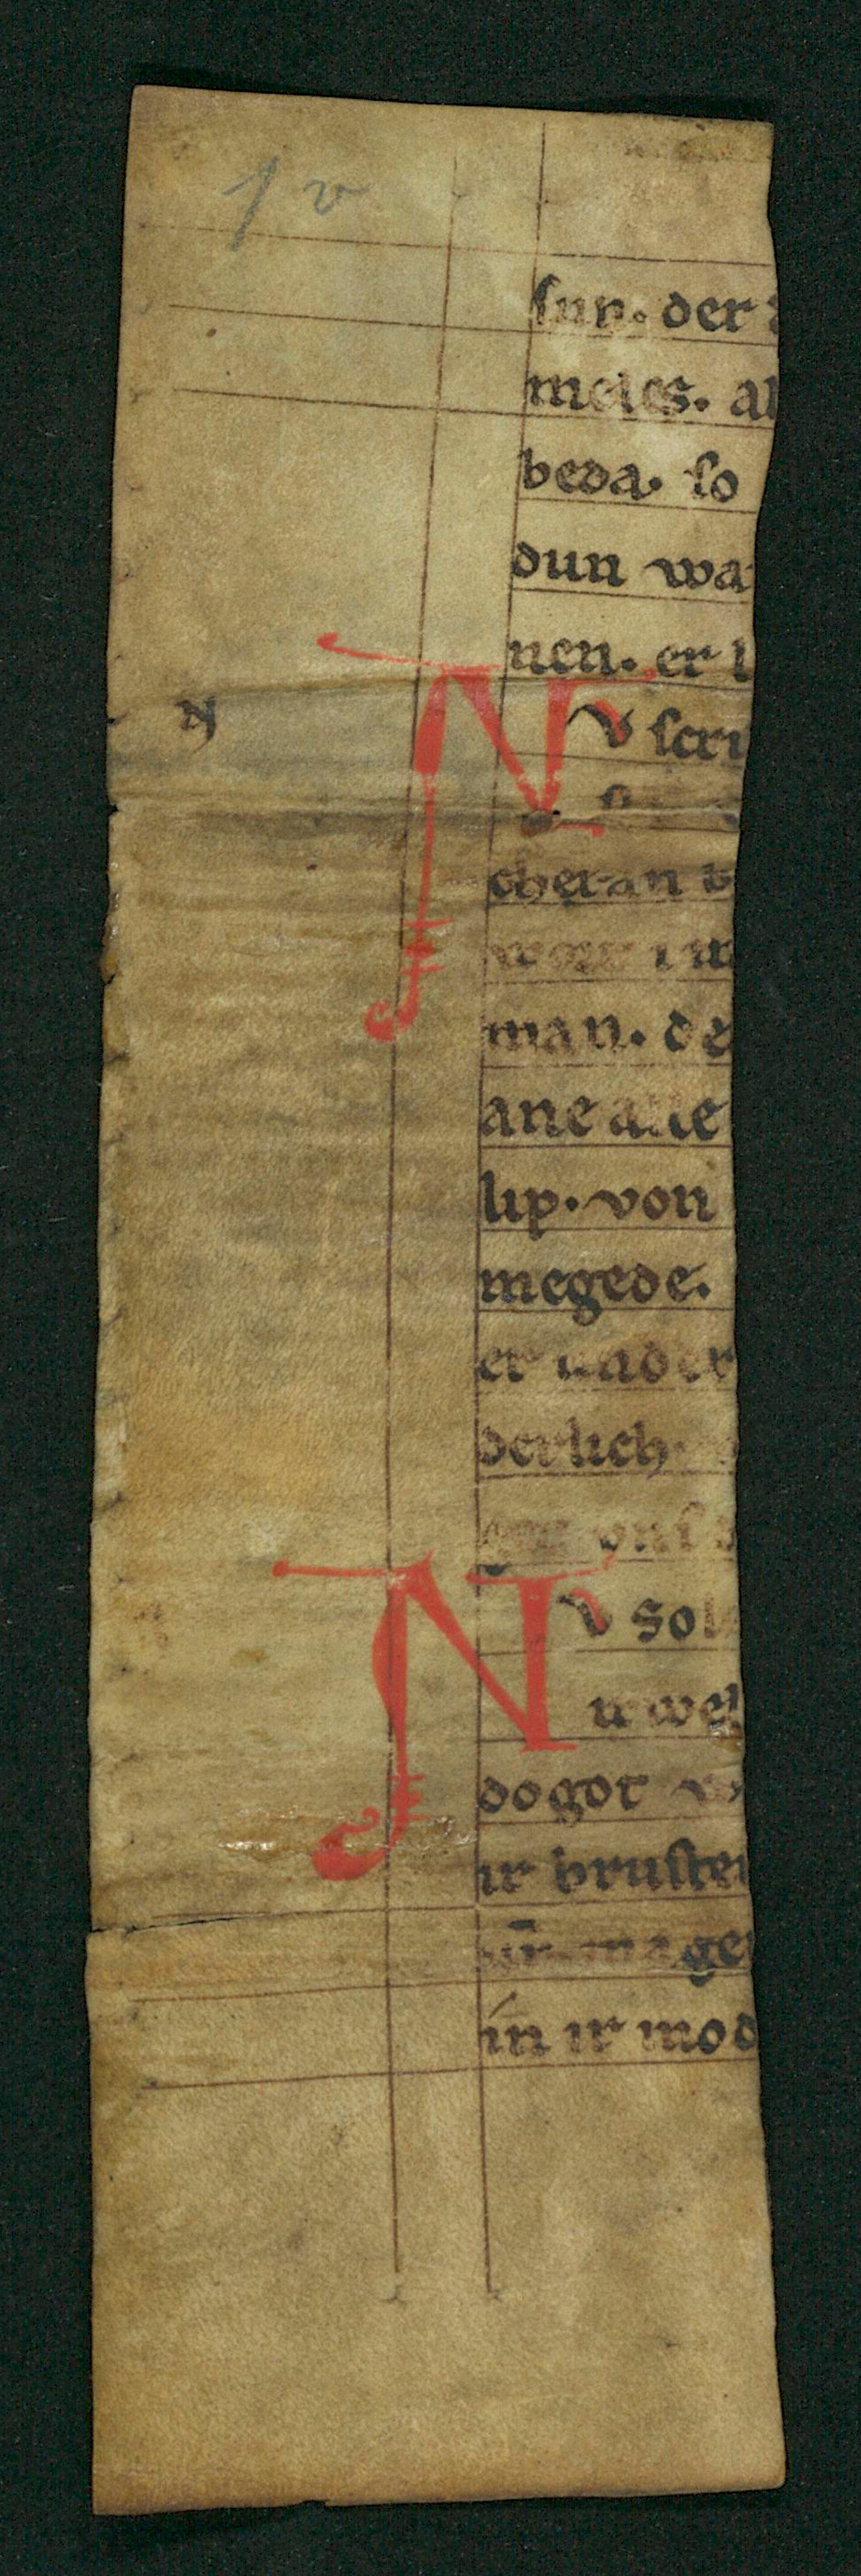 1 v
sun. der
meles. al
beda. so
dun wa
nen. er i
N
NV scri
cheran b
man. de
ane alle
lip. von
megede.
er under
derlich.
NV sol
ir wel
dogot
ir bruste
magen
ín ir mod